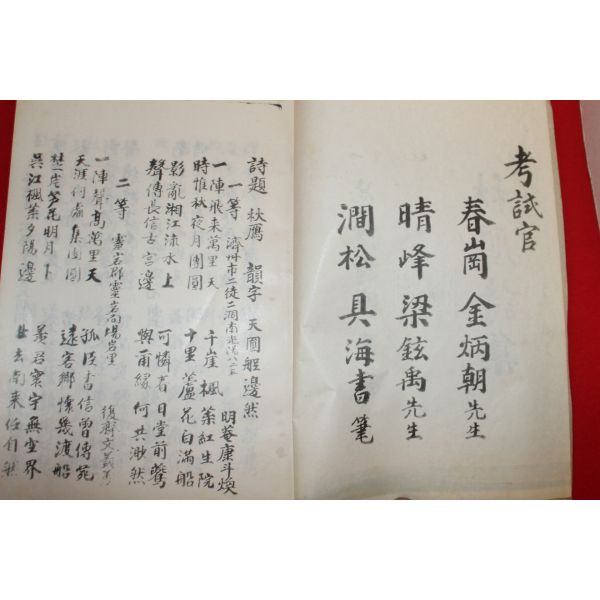 考試官
春崗 金炳朝先生
晴峰 梁鉉禹先生
澗松 具海書 筆
詩題 秋鴈 韻字 天圓船邊然
一等 濟州市二徒二洞 明菴 康斗煥
一陣飛来萬里天 千崖楓葉紅生院
時惟秋夜月團圓 十里蘆花白滿船
影亂湘江流水上 可憐者日堂前鶯
聲傳長信古宮邊 與爾緣何共渺然
二等 靈岩郡靈岩面場岩里
一陣聲高萬里天 孤臣書信曾傳苑
天涯何處集團圓 遠客鄉懷幾渡船
楚岸芦花明月下 羨君寰宇無定界
吳江楓葉夕陽邊 北去南來任自然